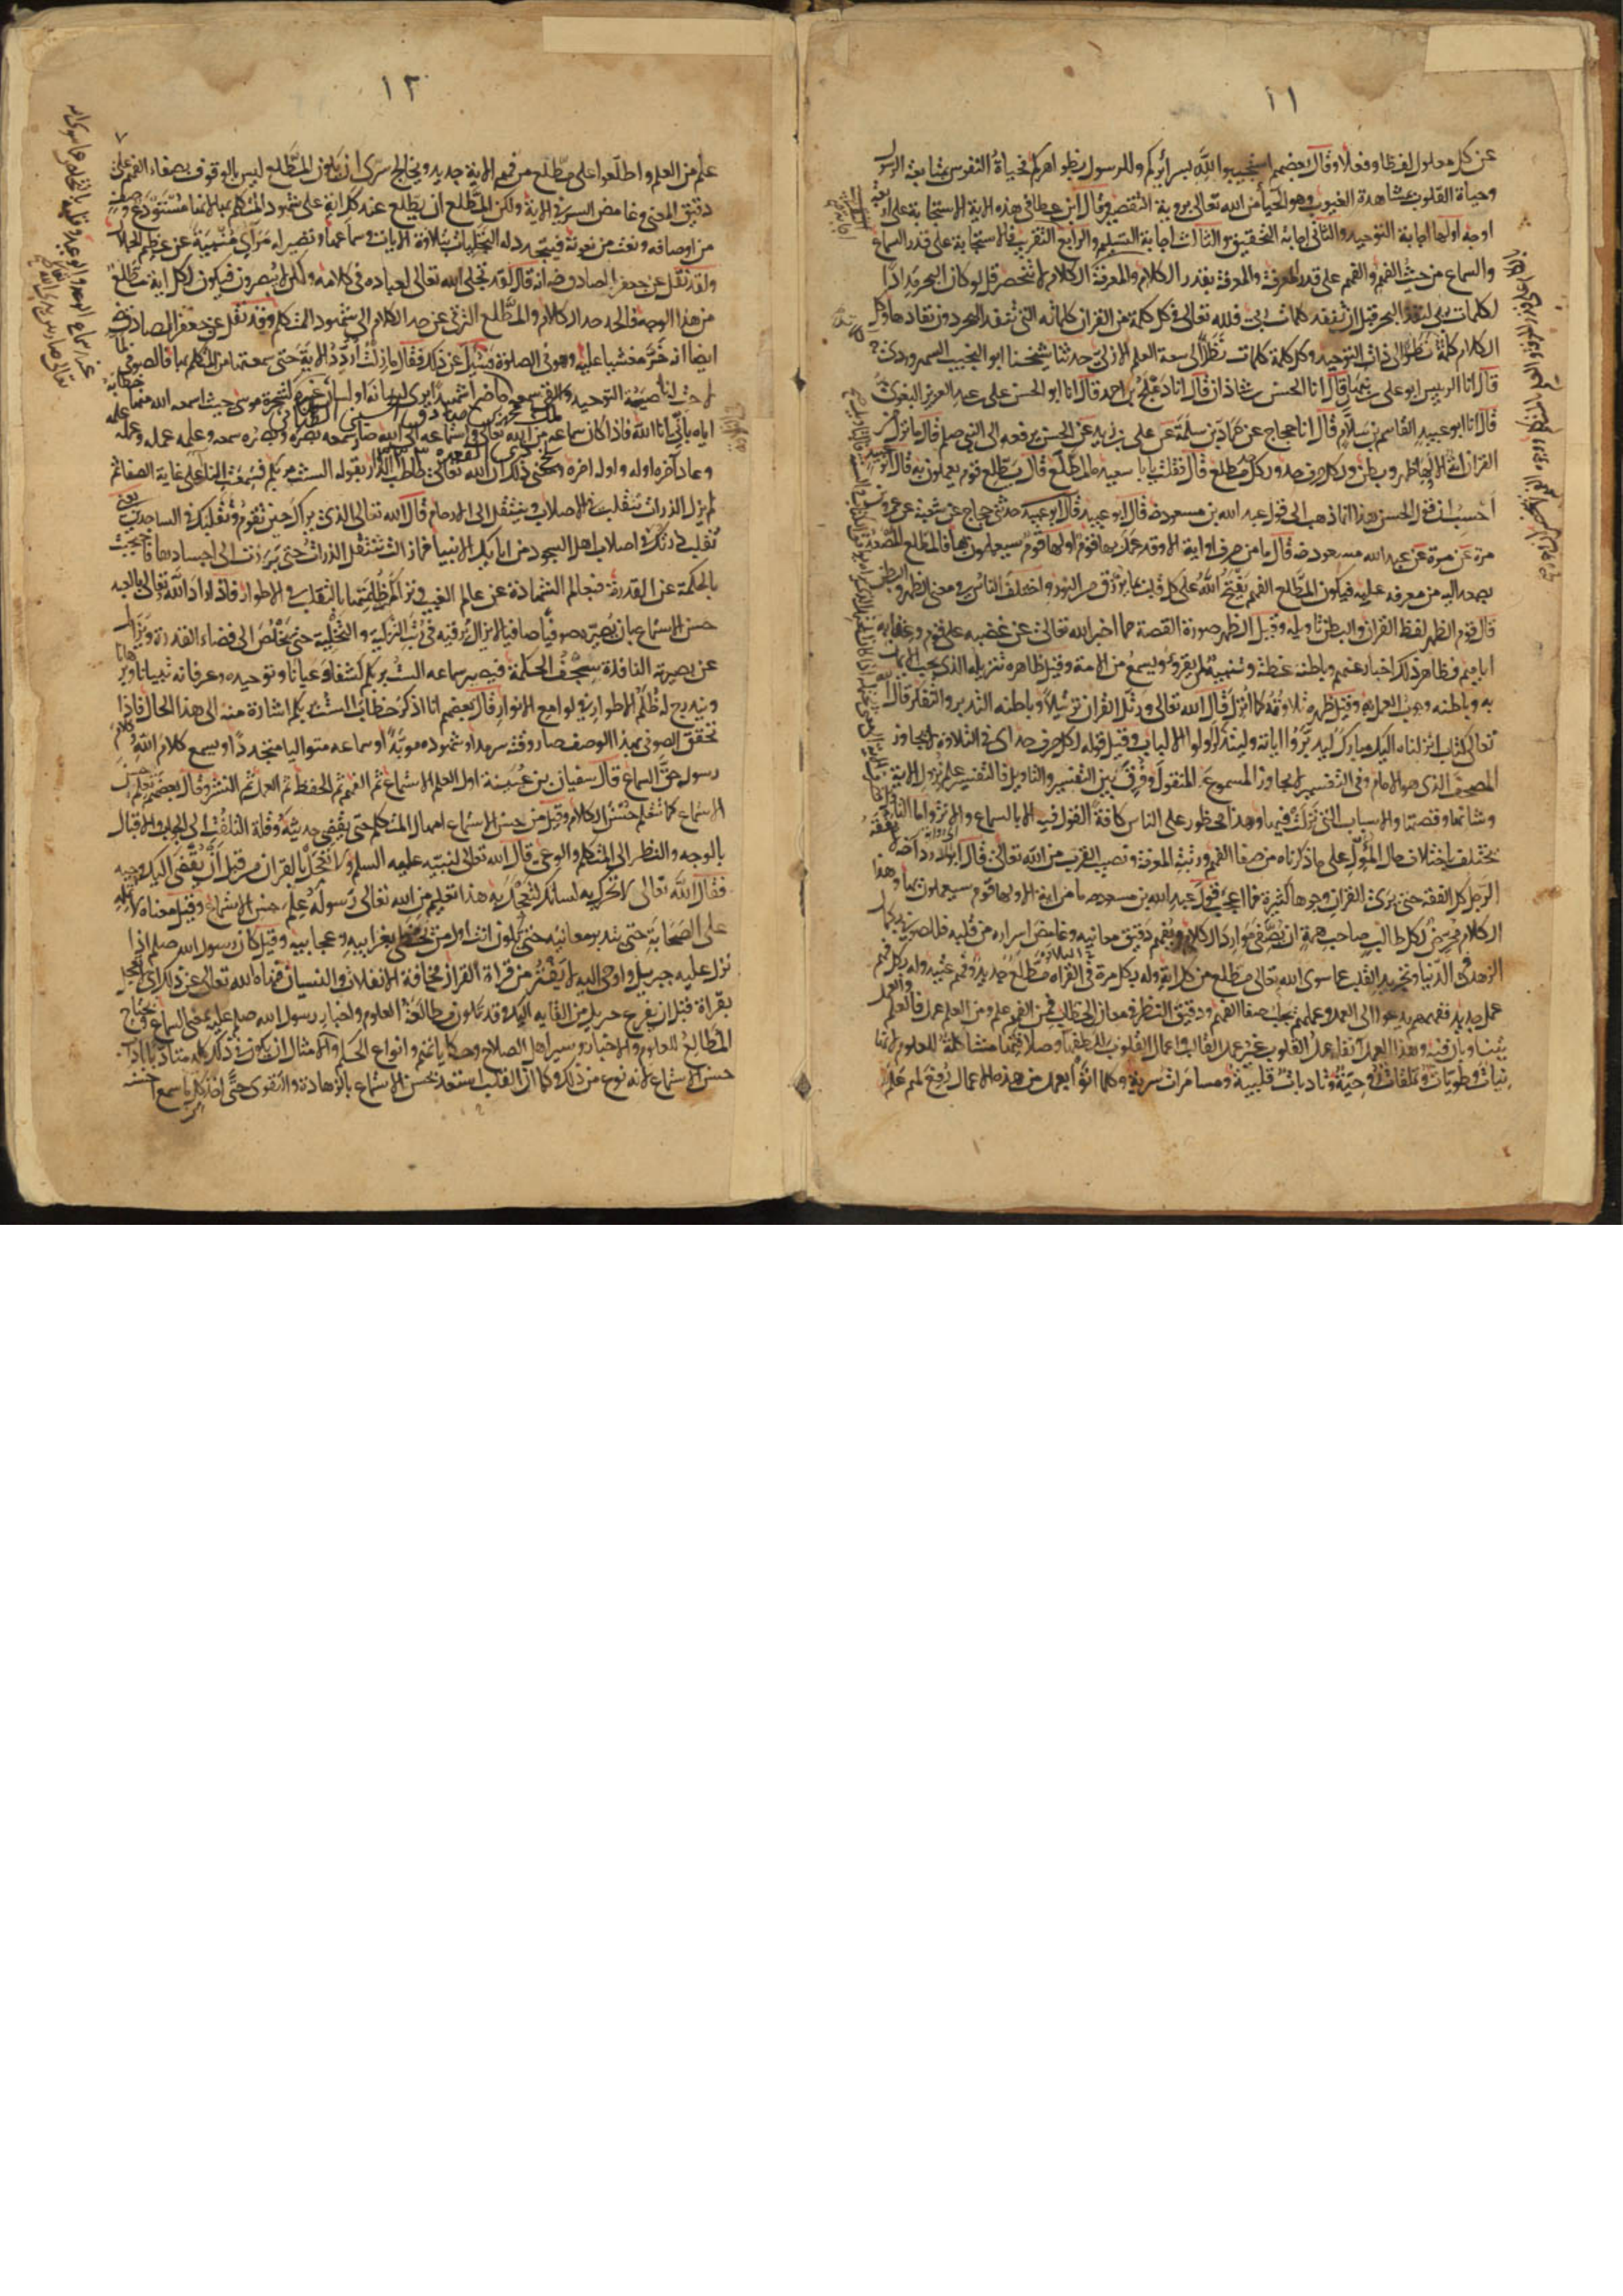 ١١
عن كل معلول لفظا وفعلا وقال بعضهم استجيبوا لله بسرائركم وللرسول بظواهركم فحياة النفوس بمتابعة الرسول
وحياة القلوب بمشاهدة الغيوب وهو الحيا من الله تعالى بروية التقصير وقال ابن عطا في هذه الاية الاستجابة على اربعة
اوجه اولها اجابة التوحيد والثاني اجابة التحقيق والثالث اجابة التسليم والرابع التقريب فالاستجابة على قدر السماع
والسماع من حيث الفهم والفهم على قدر المعرفة والمعرفة بقدر الكلام والمعرفة الكلام لا تنحصر قل لو كان البحر مدادا
لكلمات ربي لنفد البحر قبل ان تنفد كلمات ربي فلله تعالى في كل كلمة من القران كلماته التي تنفد البحر دون نفادها وكل
الكلام كلمة نظرا الى ذات التوحيد وكل كلمة كلمات نظرا لى سعة العلم الازلي حدثنا شيخنا ابو النجيب السهروردي
قال انا الرييس ابو علي بن نبهان قال انا الحسن بن شاذان قال انا دعلج بن احمد قال انا ابو الحسن علي بن عبد العزيز البغوي
قال انا ابو عبيد القاسم بن سلام قال انا حجاج عن حماد بن سلمة عن علي بن زيد عن الحسن يرفعه الى النبي صلعم قال ما نزل من
القران اية الا لها ظهر وبطن ولكل حرف حد ولكل حد مطلع قال فقلت يا با سعيد ما المطلع قال يطلع قوم يعملون به قال ابو عبيد
احسب ان قول الحسن هذا انما ذهب الى قول عبد الله بن مسعود رضه قال ابو عبيد حدثني حجاج عن شعبة عن عمرو بن
مرة عن مرة عن عبد الله بن مسعود رضه قال ما من حرف او اية الا وقد عمل بها قوم او لها قوم سيعملون بها فالمطلع المصعد
يصعد اليه من معرفة علمه فيكون المطلع الفهم بفتح الله على كل قلب بما يرزق من النور واختلف الناس في معنى الظهر والبطن
قال قوم الظهر لفظ القران والبطن تاويله وقيل الظهر صورة القصة مما اخبر الله تعالى عن غضبه على قوم وعقابه
اياهم فظاهر ذلك اخبار عنهم وباطنه عظة وتنبيه لمن يقرؤ ويسمع من الامة وقيل ظاهره تنزيله الذي يجب الايمان
به وباطنه وجوب العمل به وقيل ظهره تلاوته كما انزل قال الله تعالى ورتل القران ترتيلا وباطنه التدبر والتفكر قال الله
تعالى كتاب انزلناه اليك مبارك ليدبروا اياته وليتذكر اولوا الالباب وقيل قوله لكل حرف حد اي في التلاوة لا يجاوز
المصحف الذي هو الامام وفي التفسير لا يجاوز المسموع عن المنقول وفرق بين التفسير والتاويل فالتفسير علم نزول الاية
وشانها وقصتها والاسباب التي نزلت فيها وهذا محظور على الناس كافة القول فيه الا بالسماع والاثر واما التاويل
يختلف باختلاف حال المؤول على ما ذكرناه من صفا الفهم ورتبة المعرفة ونصب القرب من الله تعالى قال ابو الدرداء لا يفقه
الرجل كل الفقه حتى يرى القران وجوها كثيرة فما اعجب قول عبد الله بن مسعود ما من اية الا ولها قوم سيعملون بها وهذا
الكلام محرض لكل طالب صاحب همة ان يصفي موارد الكلام ويفهم دقيق معانيه وغامض اسراره من قلبه فللصوفي بكمال
الزهد في الدنيا وتجريد القلب عما سوى الله تعالى مطلع من كل اية وله بكل مرة في القراه مطلع جديد وفهم عتيد وله بكل فهم
عمل جديد ففهمهم يدعوا الى العمل وعملهم يجلب صفا الفهم ودقيق النظر في معاني الخطاب فمن الفهم علم ومن العلم عمل فالعلم والعمل
يتناوبان فيه وهذا العمل آنفا عمل القلوب غير عمل القالب واعمال القلوب للطفها وصلاتها مشاكلة للعلوم لانها
نيات وطويات وتعلقات روحية وتادبات قلبية ومسامرات سرية وكلما اتوا بعمل من هذه الاعمال رفع لهم علم
١٢
علم من العلم واطلعوا على مطلع من فهم الاية جديد ويخالج سري ان يكون المطلع ليس بالوقوف بصفاء الفهم على
دقيق المعنى وغامض السر في الاية ولكن المطلع ان يطلع عند كل اية على شهود المتكلم بها لانها مستودع وصف
من اوصافه ونعت من نعوته فيتجدد له التجليات بتلاوة الايات وسماعها وتصير له مراي منبية عن عظيم الجلال
ولقد نقل عن جعفر الصادق رضه انه قال لقد تجلى الله تعالى لعباده في كلامه ولكن لا يبصرون فيكون لكل اية مطلع
من هذا الوجه فالحد حد الكلام والمطلع الترقي عن حد الكلام الى شهود المتكلم وقد نقل عن جعفر الصادق رضه
ايضا انه خر مغشيا عليه وهو في الصلوة فسئل عن ذلك فقال ما زلت اردد الاية حتى سمعتها من المتكلم بها فالصوفي لما
لاح له ناصية التوحيد والقى سمعه
اياه باني انا الله فاذا كان سماعه من الله تعالى واستماعه الى الله صار سمعه بصره وبصره سمعه وعلمه عمله وعمله علمه
وعاد آخره اوله واوله اخره ومعنى ذلك ان الله تعالى خاطب الذر بقوله الست بربكم فسمعت النداء على غاية الصفا ثم
لم يزل الذرات تتقلب في الاصلاب وينتقل الى الارحام قال الله تعالى الذي يراك حين تقوم وتقلبك في الساجدين يعني
تقلب ذرتك في اصلاب اهل السجود من ابايك الانبيا فما زالت تنتقل الذرات حتى برزت الى اجسادها فاحتجبت
بالحكمة عن القدرة فبعالم الشهادة عن عالم الغيب وتراكم ظلمتها بالتقلب في الاطوار فاذا اراد الله تعالى بالعبد
حسن الاستماع بان يصيره صوفيا صافيا لا يزال يرقيه في رتب التزكية والتخلية حتى يخلص الى فضاء القدرة ويزال
عن بصيرته النافذة سجف الحكمة فيصير سماعه الست بربكم كشفا وعيانا وتوحيده وعرفانه تبيانا وبرهانا
ويندرج له ظلم الاطوار في لوامع الانوار قال بعضهم انا اذكر خطاب الست بربكم اشارة منه الى هذا الحال فاذا
تحقق الصوفي بهذا الوصف صار وقته سرمدا وشهوده مؤبدا وسماعه متواليا متجددا ويسمع كلام الله وكلام
رسوله حق السماع قال سفيان بن عيينة اول العلم الاستماع ثم الفهم ثم الحفظ ثم العمل ثم النشر وقال بعضهم تعلم حسن
الاستماع كما تتعلم حسن الكلام وقيل من حسن الاستماع امهال المتكلم حتى يقضي حديثه وقلة التلفت الى الجوانب والاقبال
بالوجه والنظر الى المتكلم والوعي قال الله تعالى لنبيه عليه السلم ولا تعجل بالقران من قبل ان يقضى اليك وحيه
فقال الله تعالى لا تحرك به لسانك لتعجل به هذا تعليم من الله تعالى رسوله علم حسن الاستماع وقيل معناه لا تمله
على الصحابة حتى تتدبر معانيه حتى تكون انت اول من تحظى بغرايبه وعجايبه وقيل كان رسول الله صلعم اذا
نزل عليه جبريل واوحى اليه لا يفتر من قراة القران مخافة الانفلات والنسيان فنهاه الله تعالى عن ذلك اي لا تعجل
بقراته قبل ان يفرغ جبريل من القايه اليك وقد تكون مطالعة العلوم واخبار رسول الله صلعم عليه بمعنى السماع ويحتاج
المطالع للعلوم والاخبار وسير اهل الصلاح وحكاياتهم وانواع الحكم والامثال ان يكون في ذلك كله متادبا باداب
حسن الاستماع لانه نوع من ذلك وكما ان القلب استعد لحسن الاستماع بالزهادة والتقوى حتى اخذ بكل ما سمع احسنه